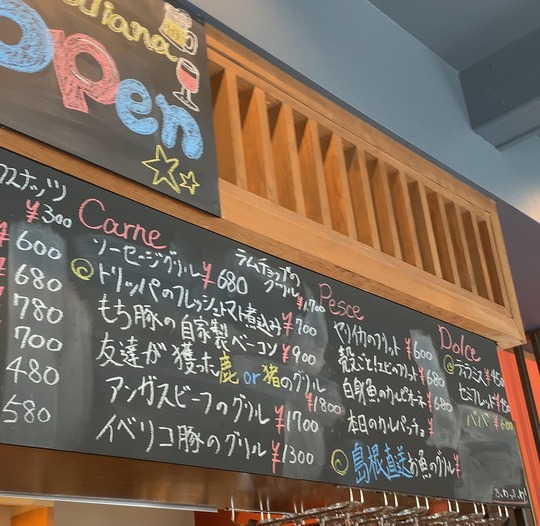 Open
ナッツ
¥300
¥600
¥680
¥780
¥700
¥480
580
Carne
ソーセージグリル ¥680
ラムチョップのグリル ¥1700
トリッパのフレッシュトマト煮込み ¥700
もち豚の自家製ベーコン ¥900
友達が獲った鹿or猪のグリル ¥1800
アンガスビーフのグリル ¥1700
イベリコ豚のグリル ¥1300
Pesce
ヤリイカのフリット ¥600
殻ごとエビのフリット ¥680
白身魚の ¥680
本日のカルパッチョ ¥
島根直送お魚のグリル ¥
Dolce
ティラミス
セミフレッド
ババ ¥600